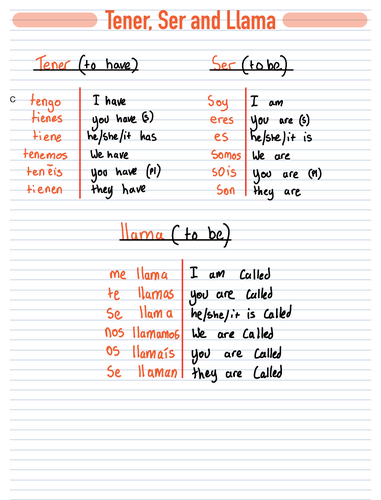 Tener, Ser and Llama
Tener (to have)
C
tengo I have
tienes you have (s)
tiene he/she/it has
tenemos we have
tenéis you have (pl)
tienen they have
Ser (to be)
Soy I am
eres you are (s)
es he/she/it is
Somos we are
sois you are (pl)
Son they are
llama (to be)
me llama I am Called
te llamas you are Called
Se llama he/she/it is Called
nos llamamos we are Called
os llamaís you are Called
Se llaman they are Called